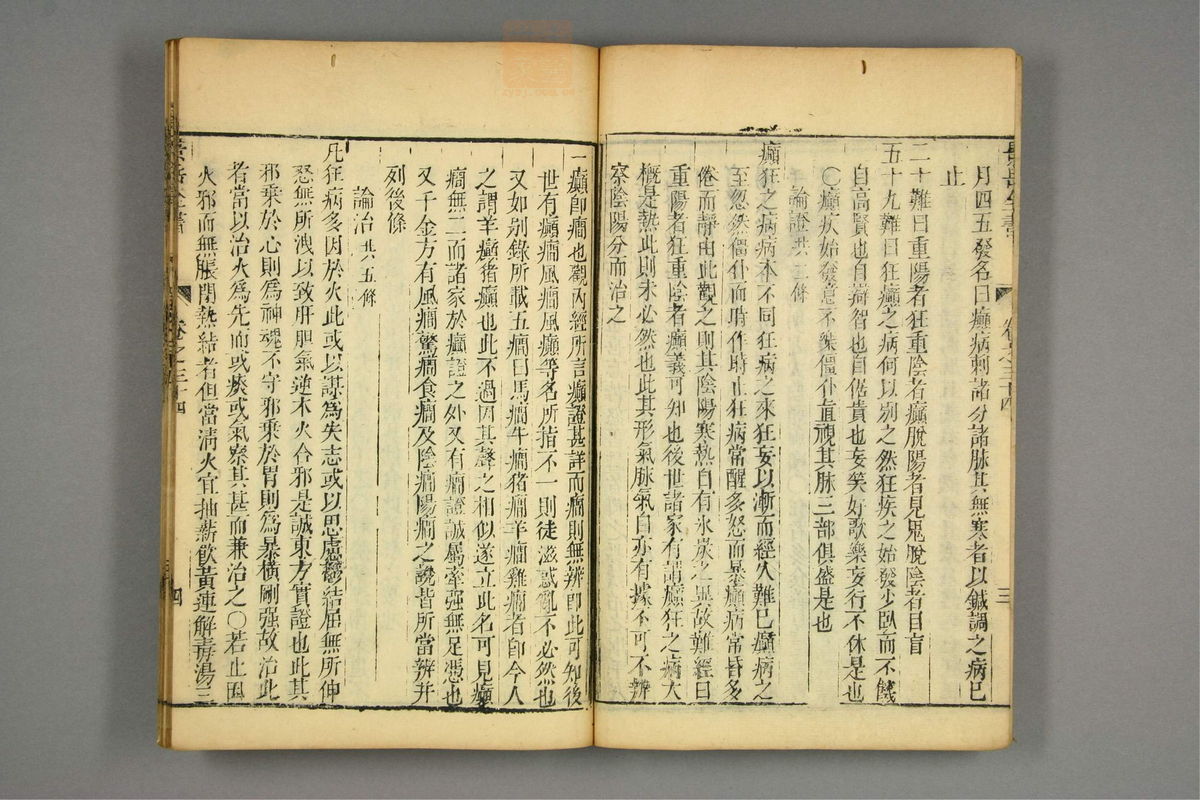 景岳全書
卷之三十四
三
月四五發名曰癲病刺諸分諸脉其無寒者以鍼調之病已
止
二十難曰重陽者狂重陰者癲脫陽者見鬼脫陰者目盲
五十九難曰狂癲之病何以別之然狂疾之始發少臥而不饑
自高賢也自辯智也自倨貴也妄笑好歌樂妄行不休是也
〇癲疾始發意不樂僵仆直視其脉三部俱盛是也
論證共二條
癲狂之病病本不同狂病之來狂妄以漸而經久難已癲病之
至忽然僵仆而時作時止狂病常醒多怒而暴癲病常昏多
倦而靜由此觀之則其陰陽寒熱自有氷炭之異故難經曰
重陽者狂重陰者癲義可知也後世諸家有謂癲狂之病大
槪是熱此則未必然也此其形氣脉氣自亦有據不可不辨
察陰陽分而治之
一癲卽癇也觀內經所言癲證甚詳而癇則無辨卽此可知後
世有癲癇風癇風癲等名所指不一則徒滋惑亂不必然也
又如別錄所載五癇曰馬癇牛癇猪癇羊癇雞癇者卽今人
之謂羊癲猪癲也此不過因其聲之相似遂立此名可見癲
癇無二而諸家於癲證之外又有癇證誠屬牽强無足憑也
又千金方有風癇驚癇食癇及陰癇陽癇之說皆所當辨并
列後條
論治共五條
凡狂病多因於火此或以謀爲失志或以思慮鬱結屈無所伸
怒無所洩以致肝胆氣逆木火合邪是誠東方實證也此其
邪乘於心則爲神魂不守邪乘於胃則爲暴橫剛强故治此
者當以治火爲先而或痰或氣察其甚而兼治之〇若止因
火邪而無脹閉熱結者但當淸火宜抽薪飮黃連解毒湯三
景岳全書
卷之三十四
四